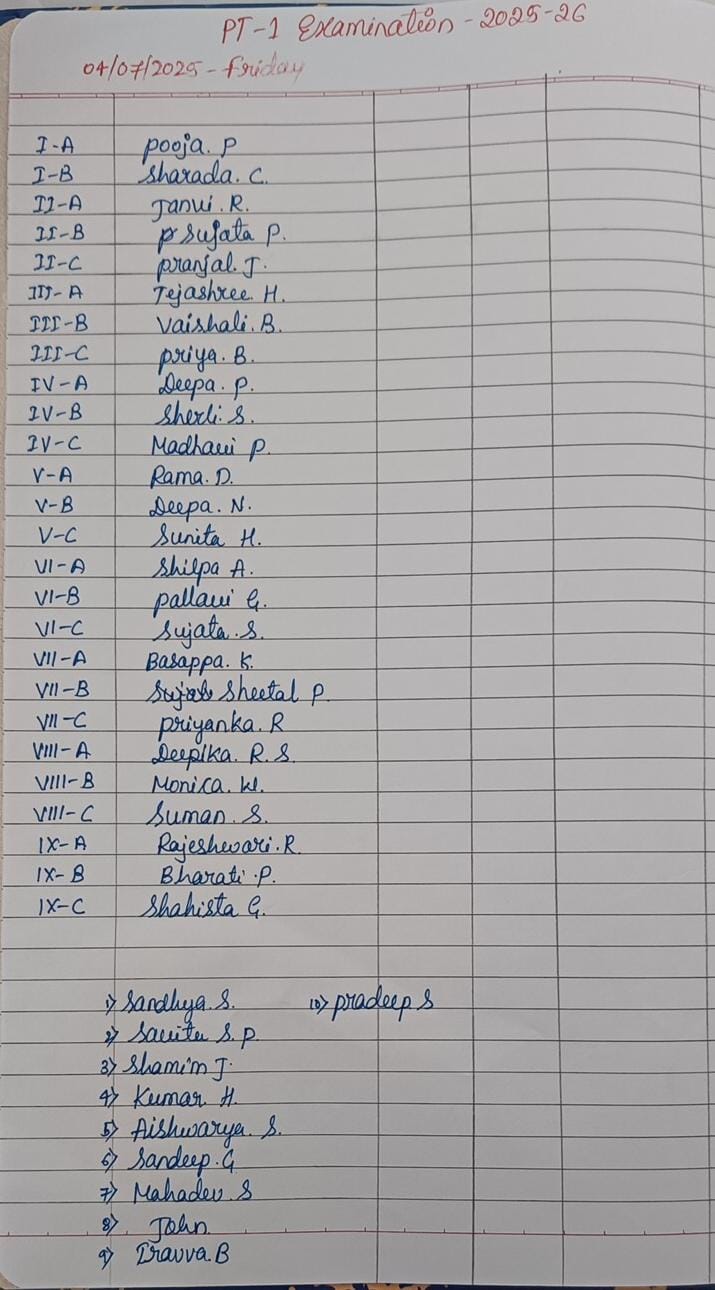 PT-1 Examination - 2025-26
04/07/2025 - Friday
I-A Pooja. P
I-B Sharada. C.
II-A Janvi. R.
II-B Sujata P.
II-C Pranjal. J.
III-A Tejashree. H.
III-B Vaishali. B.
III-C Priya. B.
IV-A Deepa. P.
IV-B Sherli. S.
IV-C Madhavi P.
V-A Rama. D.
V-B Deepa. N.
V-C Sunita H.
VI-A Shilpa A.
VI-B Pallavi G.
VI-C Sujata. S.
VII-A Basappa. K.
VII-B Sheetal P.
VII-C Priyanka. R
VIII-A Deepika. R. S.
VIII-B Monica. W.
VIII-C Suman. S.
IX-A Rajeshwari. R.
IX-B Bharati. P.
IX-C Shahista G.
1) Sandhya. S. 10) Pradeep S
2) Savita S. P.
3) Shamim J.
4) Kumar. H.
5) Aishwarya. S.
6) Sandeep. G
7) Mahadev. S
8) John
9) Iravva. B